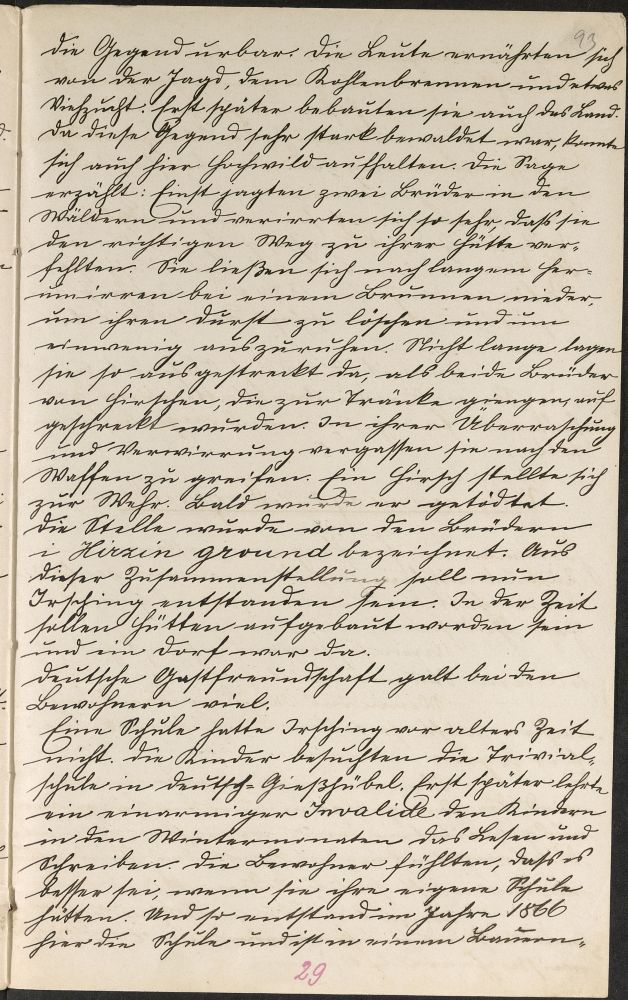 93
die Gegend urbar. Die Leute ernährten sich
von der Jagd, dem Kohlenbrennen und etwas
Viehzucht. Erst später bebauten sie auch das Land.
Da diese Gegend sehr stark bewaldet war, konnte
sich auch hier Hochwild aufhalten. Die Sage
erzählt: Einst jagten zwei Brüder in den
Wäldern und verirrten sich so sehr, dass sie
den richtigen Weg zu ihrer Hütte ver-
fehlten. Sie ließen sich nach langem Her-
umirren bei einem Brunnen nieder,
um ihren Durst zu löschen und um
ein wenig auszuruhen. Nicht lange lagen
sie so ausgestreckt da, als beide Brüder
von Hirschen, die zur Tränke giengen, auf
geschreckt wurden. In ihrer Überraschung
und Verwirrung vergassen sie nach den
Waffen zu greifen. Ein Hirsch stellte sich
zur Wehr. Bald wurde er getödtet.
Die Stelle wurde von den Brüdern
i Herzen ground bezeichnet. Aus
dieser Zusammenstellung soll nun
Irsching entstanden sein. In der Zeit
sollen Hütten aufgebaut worden sein
und ein Dorf war da.
Deutsche Gastfreundschaft galt bei den
Bewohnern viel.
Eine Schule hatte Irsching vor alters Zeit
nicht. Die Kinder besuchten die Trivial-
schule in Deutsch-Gießhübel. Erst später lehrte
ein einarmiger Invalide den Kindern
in den Wintermonaten das Lesen und
Schreiben. Die Bewohner fühlten, dass es
besser sei, wenn sie ihre eigene Schule
hätten. Und so entstand im Jahre 1866
hier die Schule und ist in einem Bauern-
29